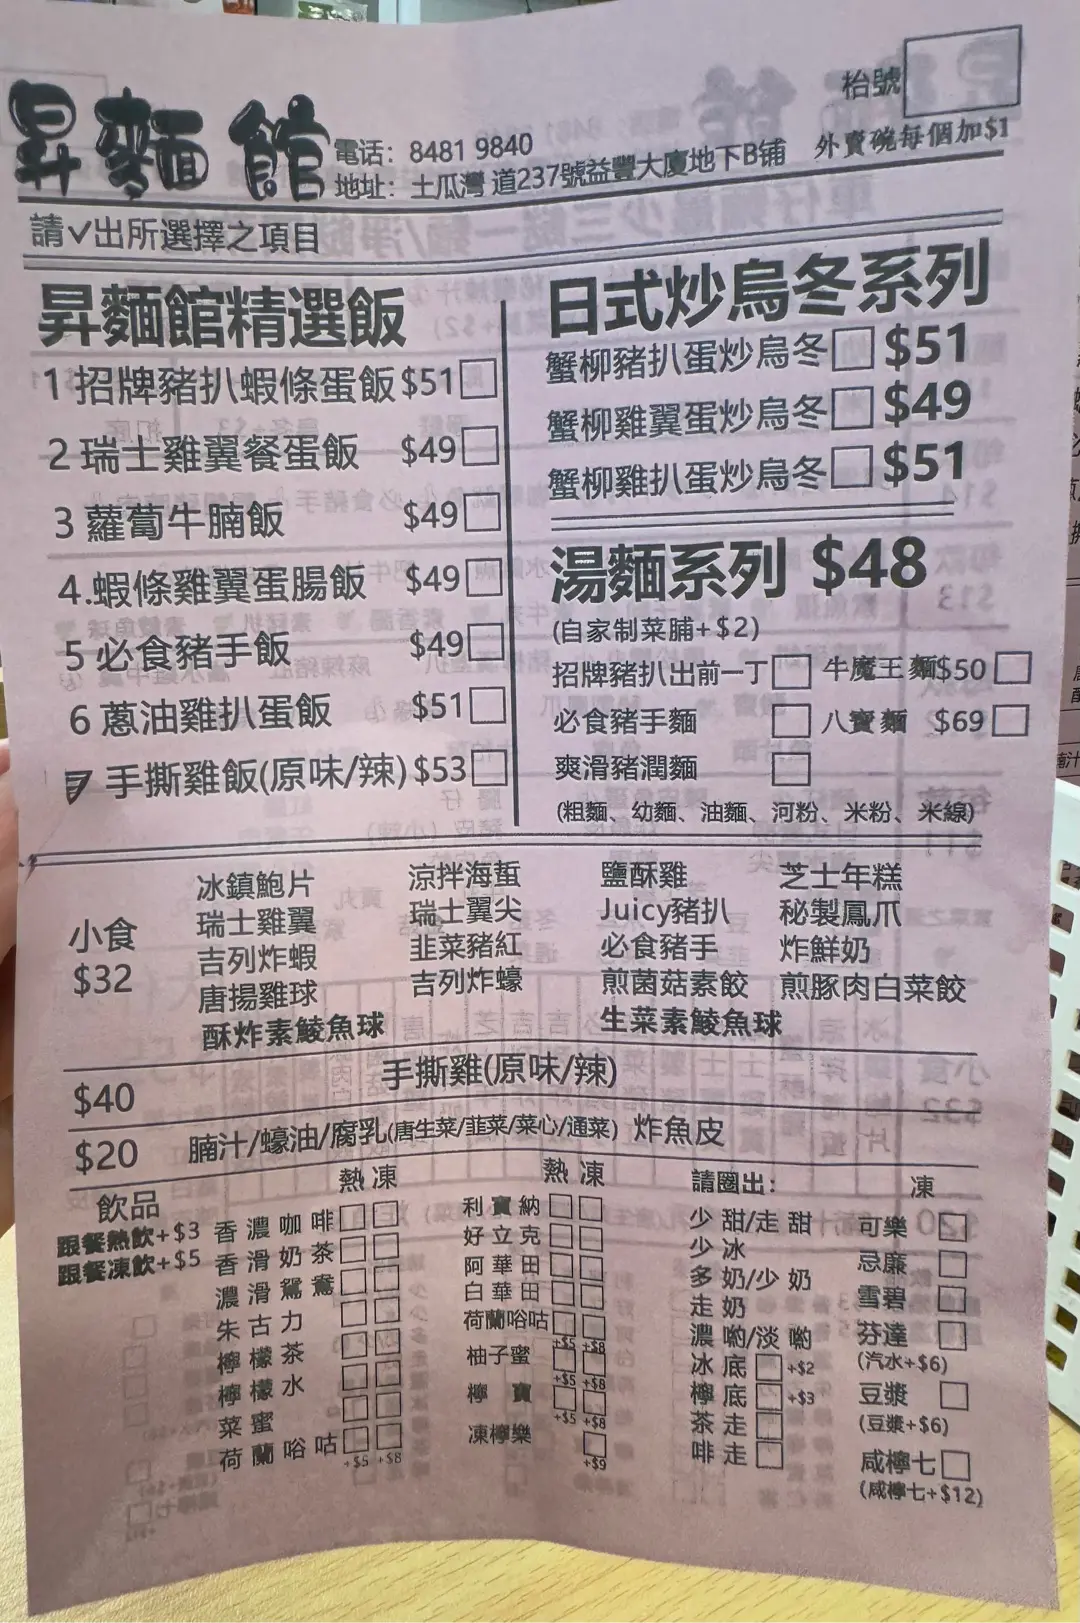 昇麵館
電话：8481 9840
地址：土瓜灣 道237號益豐大廈地下B铺
枱號
外賣碗每個加$1
請✓出所選擇之項目
昇麵館精選飯
1 招牌豬扒蝦條蛋飯 $51
2 瑞士雞翼餐蛋飯 $49
3 蘿蔔牛腩飯 $49
4.蝦條雞翼蛋腸飯 $49
5 必食豬手飯 $49
6 蔥油雞扒蛋飯 $51
7 手撕雞飯(原味/辣) $53
日式炒烏冬系列
蟹柳豬扒蛋炒烏冬 $51
蟹柳雞翼蛋炒烏冬 $49
蟹柳雞扒蛋炒烏冬 $51
湯麵系列 $48
(自家制菜脯+$2)
招牌豬扒出前一丁 牛魔王麵$50
必食豬手麵 八寶麵 $69
爽滑豬潤麵
(粗麵、幼麵、油麵、河粉、米粉、米線)
小食
$32
冰鎮鮑片 涼拌海蜇 鹽酥雞 芝士年糕
瑞士雞翼 瑞士翼尖 Juicy豬扒 秘製鳳爪
吉列炸蝦 韭菜豬紅 必食豬手 炸鮮奶
唐揚雞球 吉列炸蠔 煎菌菇素餃 煎豚肉白菜餃
酥炸素鯪魚球 生菜素鯪魚球
$40 手撕雞(原味/辣)
$20 腩汁/蠔油/腐乳(唐生菜/韭菜/菜心/通菜) 炸魚皮
飲品
跟餐熱飲+$3
跟餐凍飲+$5
熱 凍
香濃咖啡
香滑奶茶
濃滑鴛鴦
朱古力
檸檬茶
檸檬水
菜蜜
荷蘭㗎咕
+$5 +$8
熱 凍
利賓納
好立克
阿華田
白華田
荷蘭㗎咕
+$5 +$8
柚子蜜
+$5 +$8
檸寶
+$5 +$8
凍檸樂
+$9
請圈出：
少甜/走甜
少冰
多奶/少奶
走奶
濃啲/淡啲
冰底 +$2
檸底 +$3
茶走
啡走
凍
可樂
忌廉
雪碧
芬達
(汽水+$6)
豆漿
(豆漿+$6)
咸檸七
(咸檸七+$12)